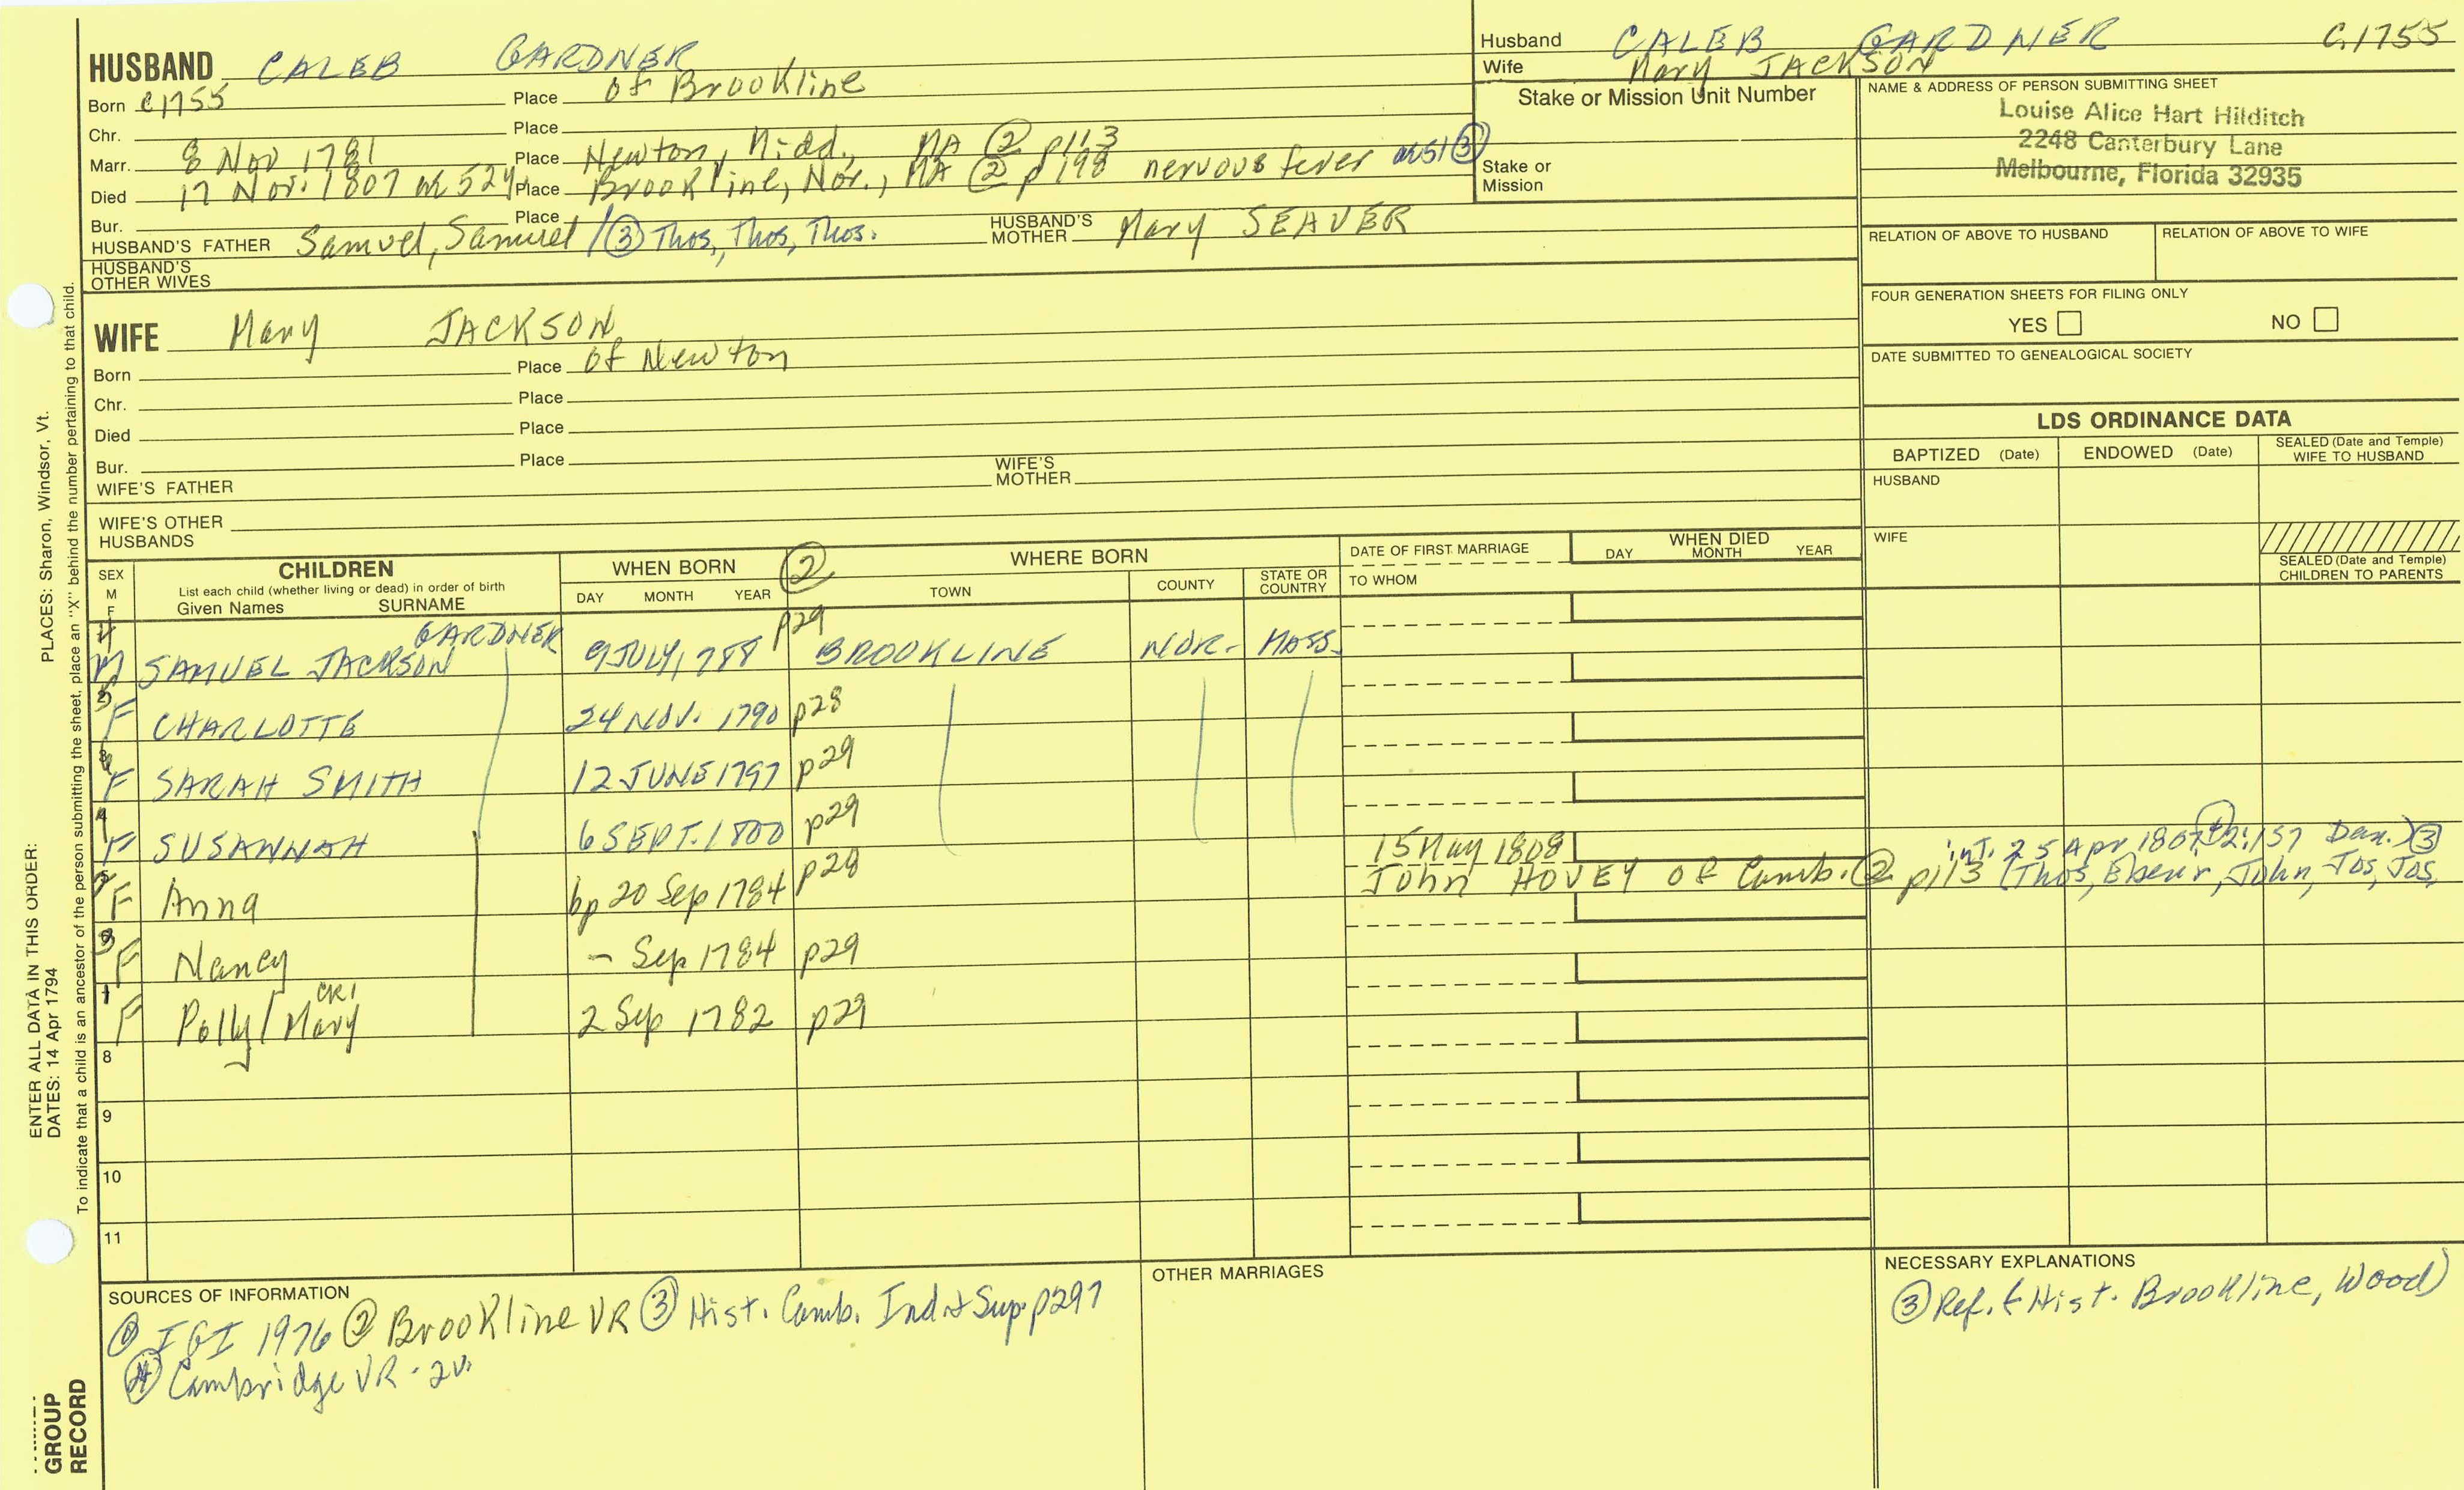 HUSBAND CALEB GARDNER
Born c1755 Place of Brookline
Chr. Place
Marr. 8 Nov 1781 Place Newton, Midd., MA ② p113
Died 17 Nov. 1807 ae 52y. Place Brookline, Nor., MA ② p198 nervous fever ae51 ③
Bur. Place
HUSBAND'S FATHER Samuel, Samuel / ③ Thos, Thos, Thos. HUSBAND'S MOTHER Mary SEAVER
HUSBAND'S OTHER WIVES
Husband CALEB GARDNER C.1755
Wife Mary JACKSON
Stake or Mission Unit Number
Stake or Mission
NAME & ADDRESS OF PERSON SUBMITTING SHEET
Louise Alice Hart Hilditch
2248 Canterbury Lane
Melbourne, Florida 32935
RELATION OF ABOVE TO HUSBAND RELATION OF ABOVE TO WIFE
FOUR GENERATION SHEETS FOR FILING ONLY
YES NO
DATE SUBMITTED TO GENEALOGICAL SOCIETY
WIFE Mary JACKSON
Born Place of Newton
Chr. Place
Died Place
Bur. Place
WIFE'S FATHER WIFE'S MOTHER
WIFE'S OTHER HUSBANDS
LDS ORDINANCE DATA
BAPTIZED (Date) ENDOWED (Date) SEALED (Date and Temple) WIFE TO HUSBAND
HUSBAND
WIFE
SEALED (Date and Temple) CHILDREN TO PARENTS
SEX M F
CHILDREN
List each child (whether living or dead) in order of birth
Given Names SURNAME
WHEN BORN
DAY MONTH YEAR
②
WHERE BORN
TOWN COUNTY STATE OR COUNTRY
DATE OF FIRST MARRIAGE
TO WHOM
WHEN DIED
DAY MONTH YEAR
GARDNER
M SAMUEL JACKSON 9 JULY, 788 p29 BROOKLINE NOR. MASS.
F CHARLOTTE 24 NOV. 1790 p28
F SARAH SMITH 12 JUNE 1797 p29
F SUSANNAH 6 SEPT. 1800 p29
F Anna bp 20 Sep 1784 p28
15 May 1808 int. 25 Apr 1807 2:157 ③
John HOVEY of Camb. ② p113 (Thos, Ebenr, John, Jos, Jos,
F Nancy - Sep 1784 p29
F Polly / Mary CR1 2 Sep 1782 p29
8
9
10
11
SOURCES OF INFORMATION
① IGI 1976 ② Brookline VR ③ Hist. Camb. Ind & Sup p297
④ Cambridge VR - 2v.
OTHER MARRIAGES
NECESSARY EXPLANATIONS
③ Ref. t Hist. Brookline, Wood)
ENTER ALL DATA IN THIS ORDER:
PLACES: Sharon, Windsor, Vt.
DATES: 14 Apr 1794
To indicate that a child is an ancestor of the person submitting the sheet, place an "X" behind the number pertaining to that child.
GROUP
RECORD